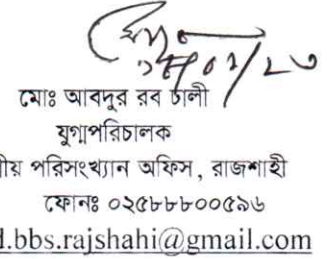 মোঃ আবদুর রব ঢালী
যুগ্মপরিচালক
ীয় পরিসংখ্যান অফিস, রাজশাহী
ফোনঃ ০২৫৮৮৮০০৫৯৬
d.bbs.rajshahi@gmail.com